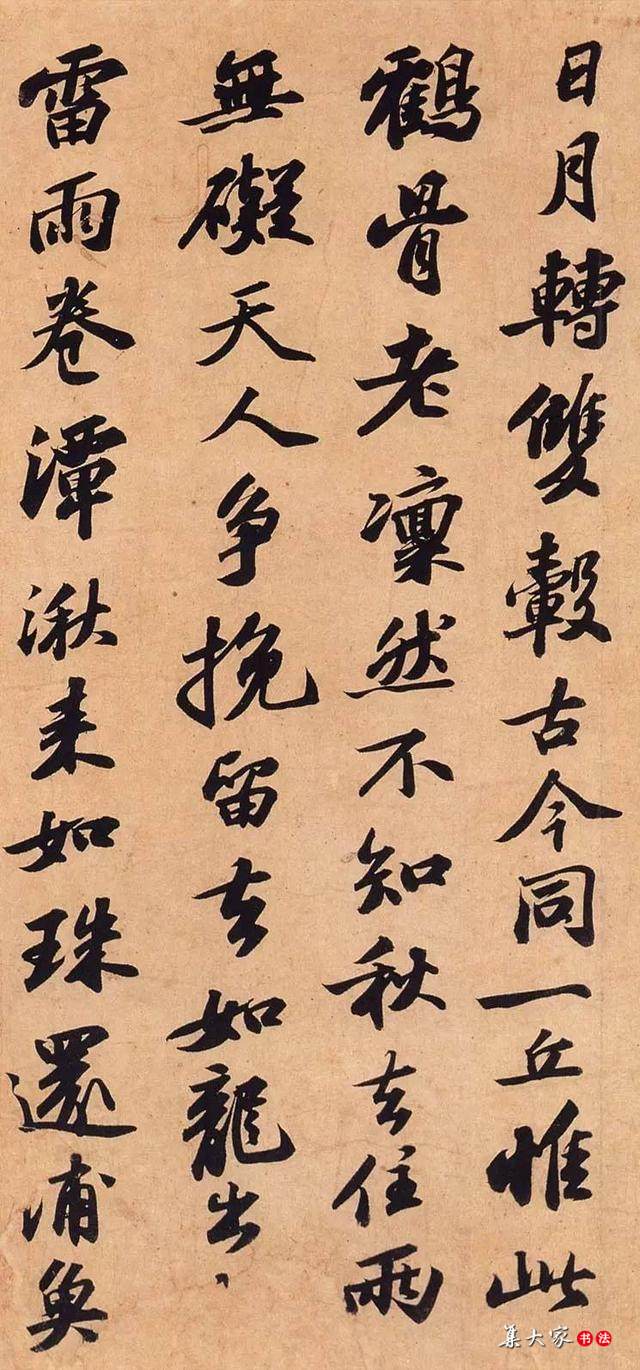 日月轉雙轂古今同一丘惟此
鶴骨老凜然不知秋去住兩
無礙天人争挽留去如龍出、
雷雨卷潭湫来如珠還浦魚
集大家书法